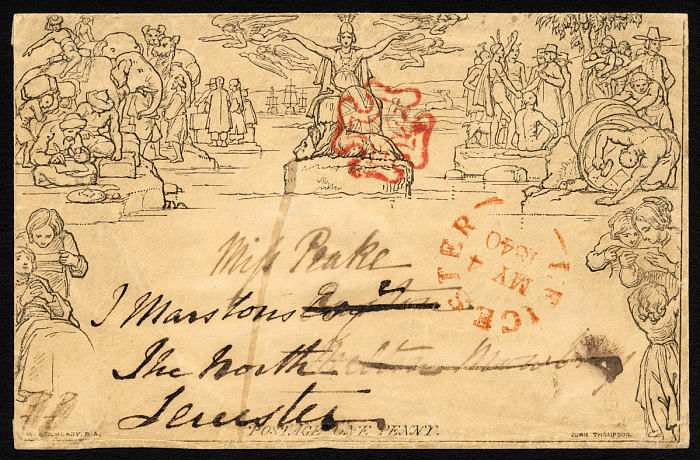 LEICESTER
MY 4
1840
Miss Peake
J Marstons Esqr
The North
Leicester
POSTAGE ONE PENNY.
W. MULREADY, R.A.
JOHN THOMPSON